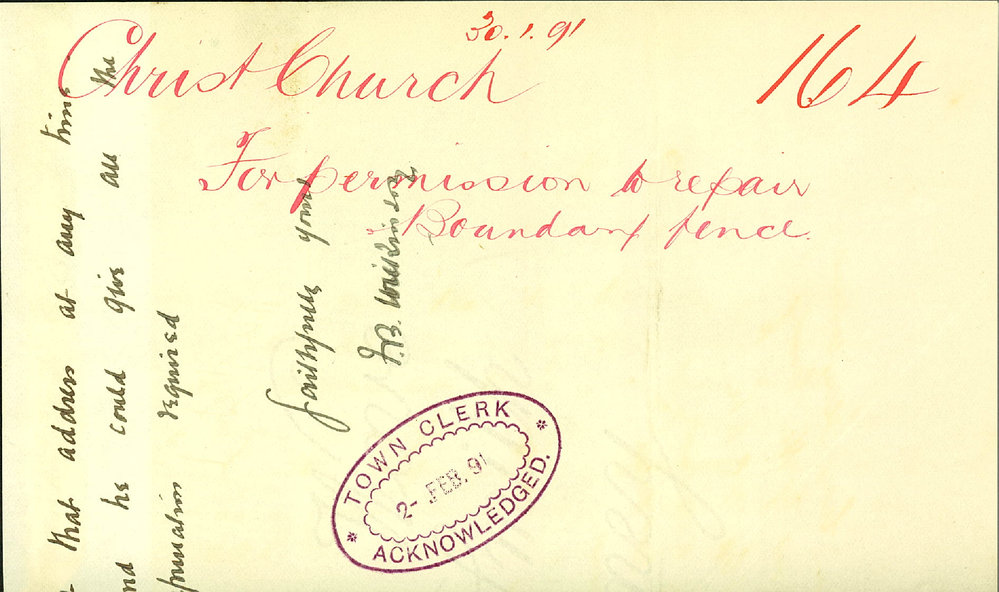 30.1.91
Christ Church 164
For permission to repair
Boundary fence.
that address at any time
and he could give all the
required
faithfully yours
J.B.
TOWN CLERK
2- FEB. 91
ACKNOWLEDGED.